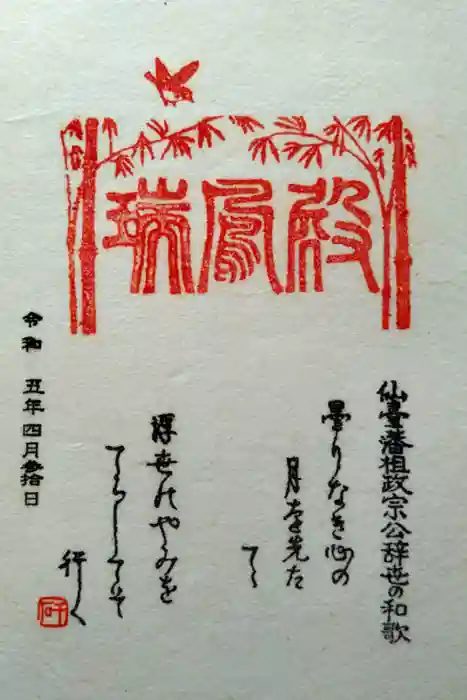 瑞鳳殿
仙臺藩祖政宗公辞世の和歌
曇りなき心の
月を先た
てゝ
浮世のやみを
てらしてぞ
行く
令和 五年四月参拾日